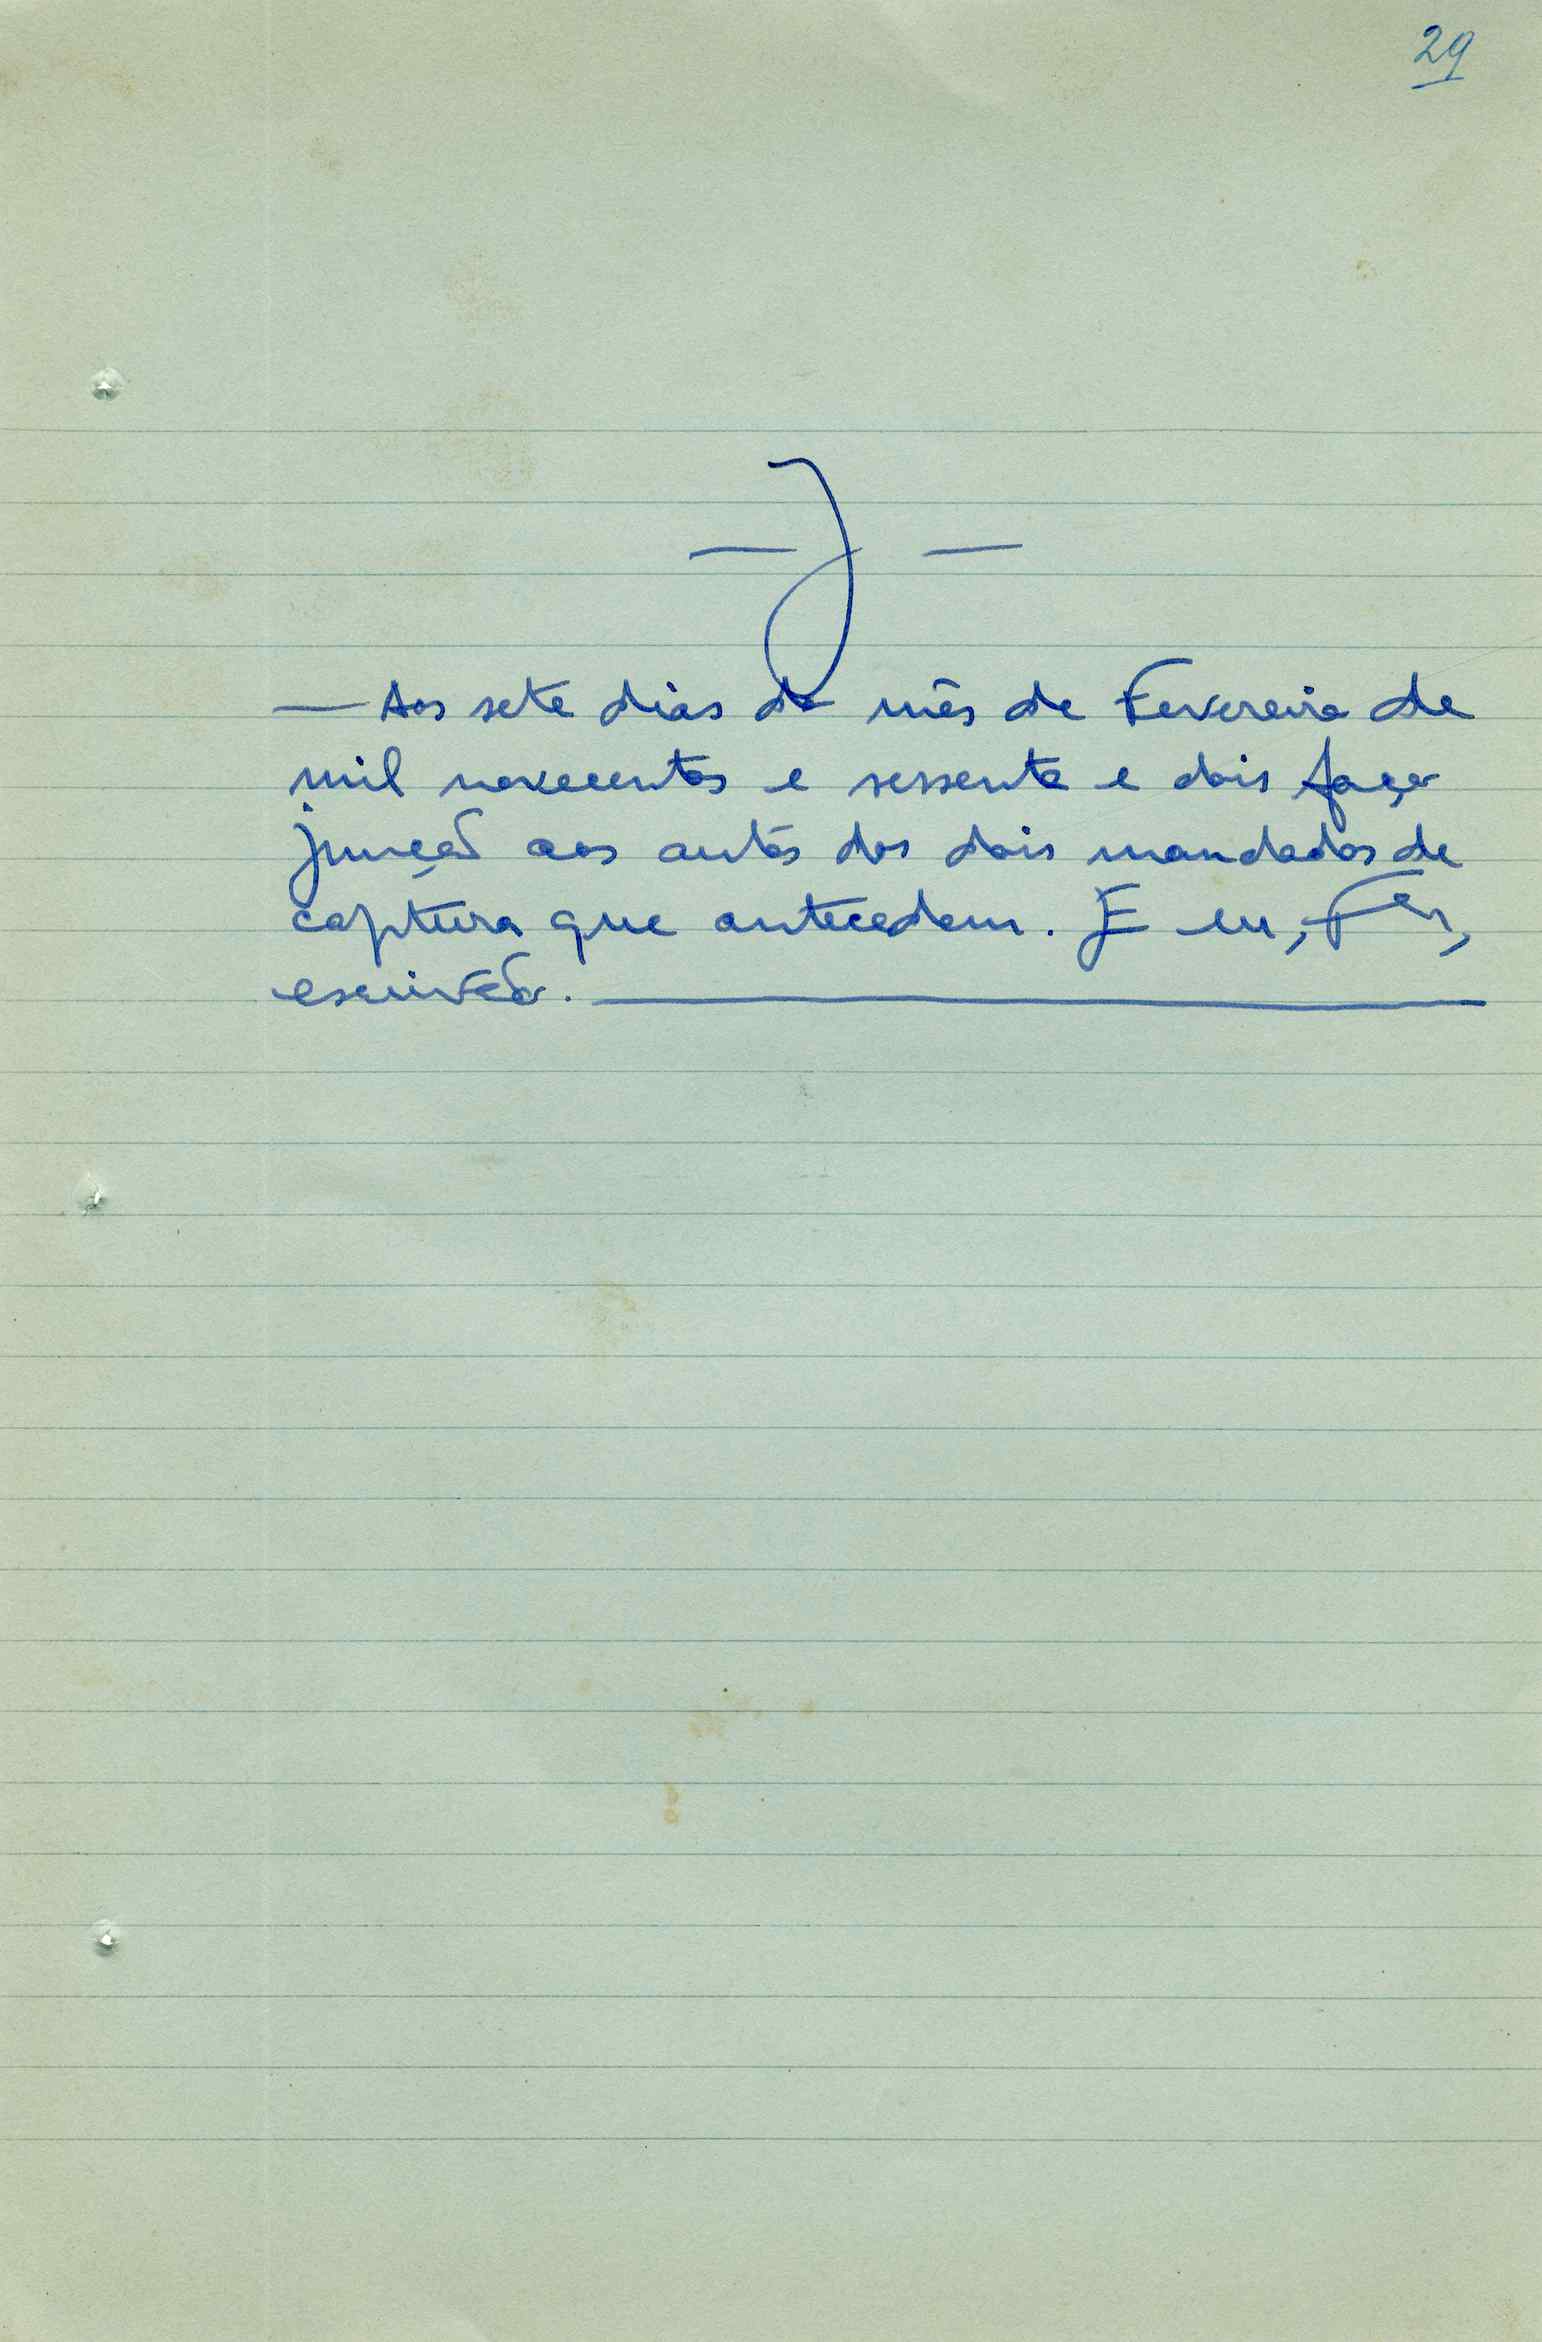 29
— J —
— Aos sete dias do mês de Fevereiro de
mil novecentos e sessenta e dois faço
junção aos autos dos dois mandados de
captura que antecedem. E eu,
escrivão.